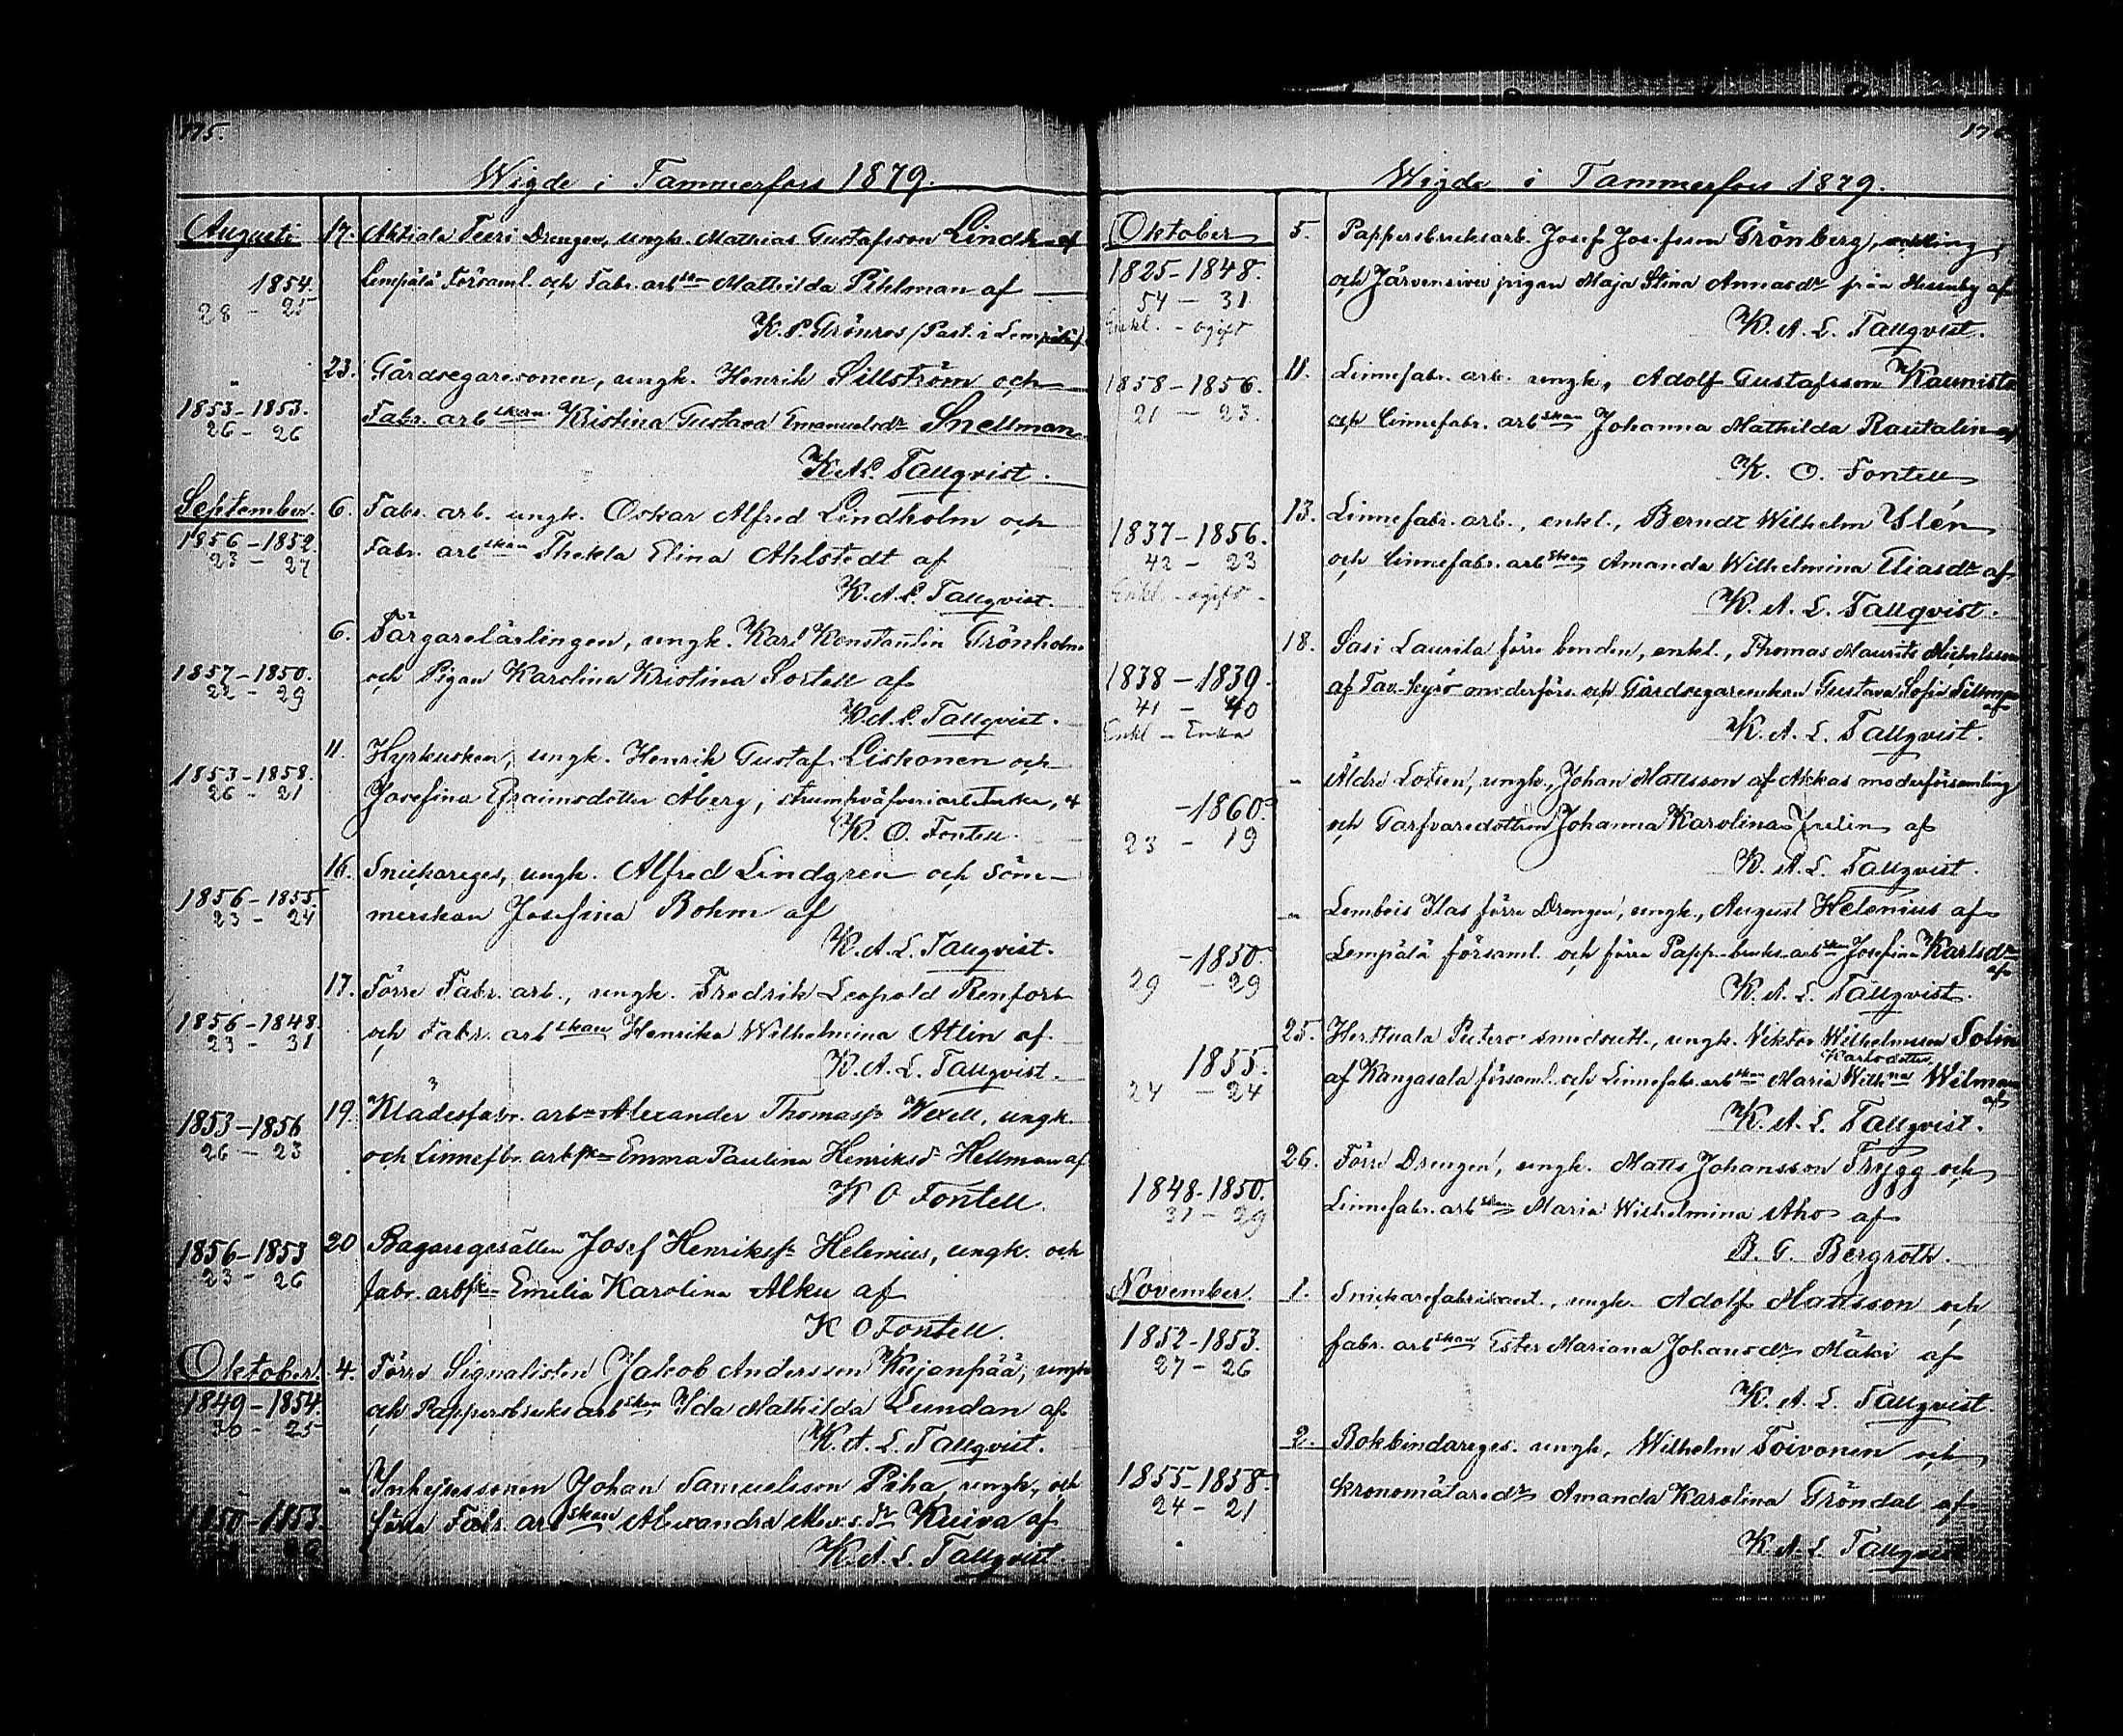 175.
Wigde i Tammerfors 1879.
Augusti 17. Ahtiala Teeri Drengen, ungk. Mathias Gustafsson Lindh af
1854. Lempälä Församl. och Fabr. arbskan Mathilda Pihlman af
28 - 25
K. P. Grönros (Past. i Lempälä).
23. Gårdsegaresonen, ungk. Henrik Sillström och
1853-1853. Fabr. arbskan Kristina Gustava Emanuelsdr Snellman
26 - 26
K. A. L. Tallqvist.
September. 6. Fabr. arb. ungk. Oskar Alfred Lindholm och
1856-1852. Fabr. arbskan Thekla Elina Ahlstedt af
23 - 27
K. A. L. Tallqvist.
6. Färgarelärlingen, ungk. Karl Konstantin Grönholm
1857-1850. och Pigan Karolina Kristina Sortell af
22 - 29
K. A. L. Tallqvist.
11. Hyrkusken, ungk. Henrik Gustaf Liskonen och
1853-1858. Josefina Efraimsdotter Åberg, strumpväfveriarbeterska, af
26 - 21
K. O. Fontell.
16. Snickareges, ungk. Alfred Lindgren och Söm-
1856-1855. merskan Josefina Bohm af
23 - 24
K. A. L. Tallqvist.
17. Förre Fabr. arb., ungk. Fredrik Leopold Renfors
1856-1848. och Fabr. arbskan Henrika Wilhelmina Atlin af
23 - 31
K. A. L. Tallqvist.
19. Klädesfabr. arbn Alexander Thomass. Wexell, ungk.
1853-1856 och Linnefbr. arbsk Emma Paulina Henriksdr Hellman af
26 - 23
K O Fontell.
20 Bagaregesällen Josef Henrikss. Helenius, ungk. och
1856-1853 fabr. arbsk Emilia Karolina Alku af
23 - 26
K O Fontell.
Oktober. 4. Förre Signalisten Jakob Andersson Kujanpää, ungk.
1849-1854. och Pappersbruks arbskan Ida Mathilda Lundan af
30 - 25
K. A. L. Tallqvist.
" Inhysessonen Johan Samuelsson Piha, ungk., och
1850-1853. förra Fabr. arbskan Alexandra Kuiva af
K. A. L. Tallqvist.
176
Wigde i Tammerfors 1879.
Oktober 5. Pappersbruksarb. Josef Josefsson Grönberg, enkling
1825-1848. och Järvensivu pigan Maja Stina Annasdr från af
54 - 31
Enkl. - ogift
K. A. L. Tallqvist.
11. Linnefabr. arb. ungk., Adolf Gustafsson Kaunisto
1858-1856. och Linnefabr. arbskan Johanna Mathilda Rautalin af
21 - 23.
K. O. Fontell
13. Linnefabr. arb., enkl., Berndt Wilhelm Ylén
1837-1856. och Linnefabr. arbskan Amanda Wilhelmina Eliasdr af
42 - 23
Enkl. - ogift.
K. A. L. Tallqvist.
18. Sasi Laurila förre bonden, enkl., Thomas Maurits Michelsson
1838-1839. af Tav. Kyrö moderförs. och Gårdsegarenkan Gustava Sofia af
41 - 40
Enkl - Enka
K. A. L. Tallqvist.
" Äldre Lotsen, ungk., Johan Mattsson af Akkas moderförsamling
-1860. och Garfvaredottren Johanna Karolina Julin af
23 - 19
K. A. L. Tallqvist.
" Lembois Ylas förre Drengen, ungk., August Helenius af
-1850. Lempälä församl. och förra Papp.bruks-arbskan Josefina Karlsdr af
29 - 29
K. A. L. Tallqvist.
25. Herttuala Putero smedsutl., ungk. Viktor Wilhelmsson Solin
1855. af Kangasala församl. och Linnefabr. arbskan Maria Wilhna Karlsdotter Wilman af
24 - 24
K. A. L. Tallqvist.
26. Förre Drengen, ungk. Matts Johansson Trygg och
1848-1850. Linnefabr. arbskan Maria Wilhelmina Aho af
31 - 29
B. G. Bergroth.
November. 1. Snickarefabrikant., ungk. Adolf Mattsson och
1852-1853. fabr. arbskan Ester Mariana Johansdr Mäki af
27 - 26
K. A. L. Tallqvist.
2. Bokbindareges. ungk. Wilhelm Toivonen och
1855-1858. kronomätaredr Amanda Karolina Gröndal af
24 - 21
K. A. L. Tallqvist